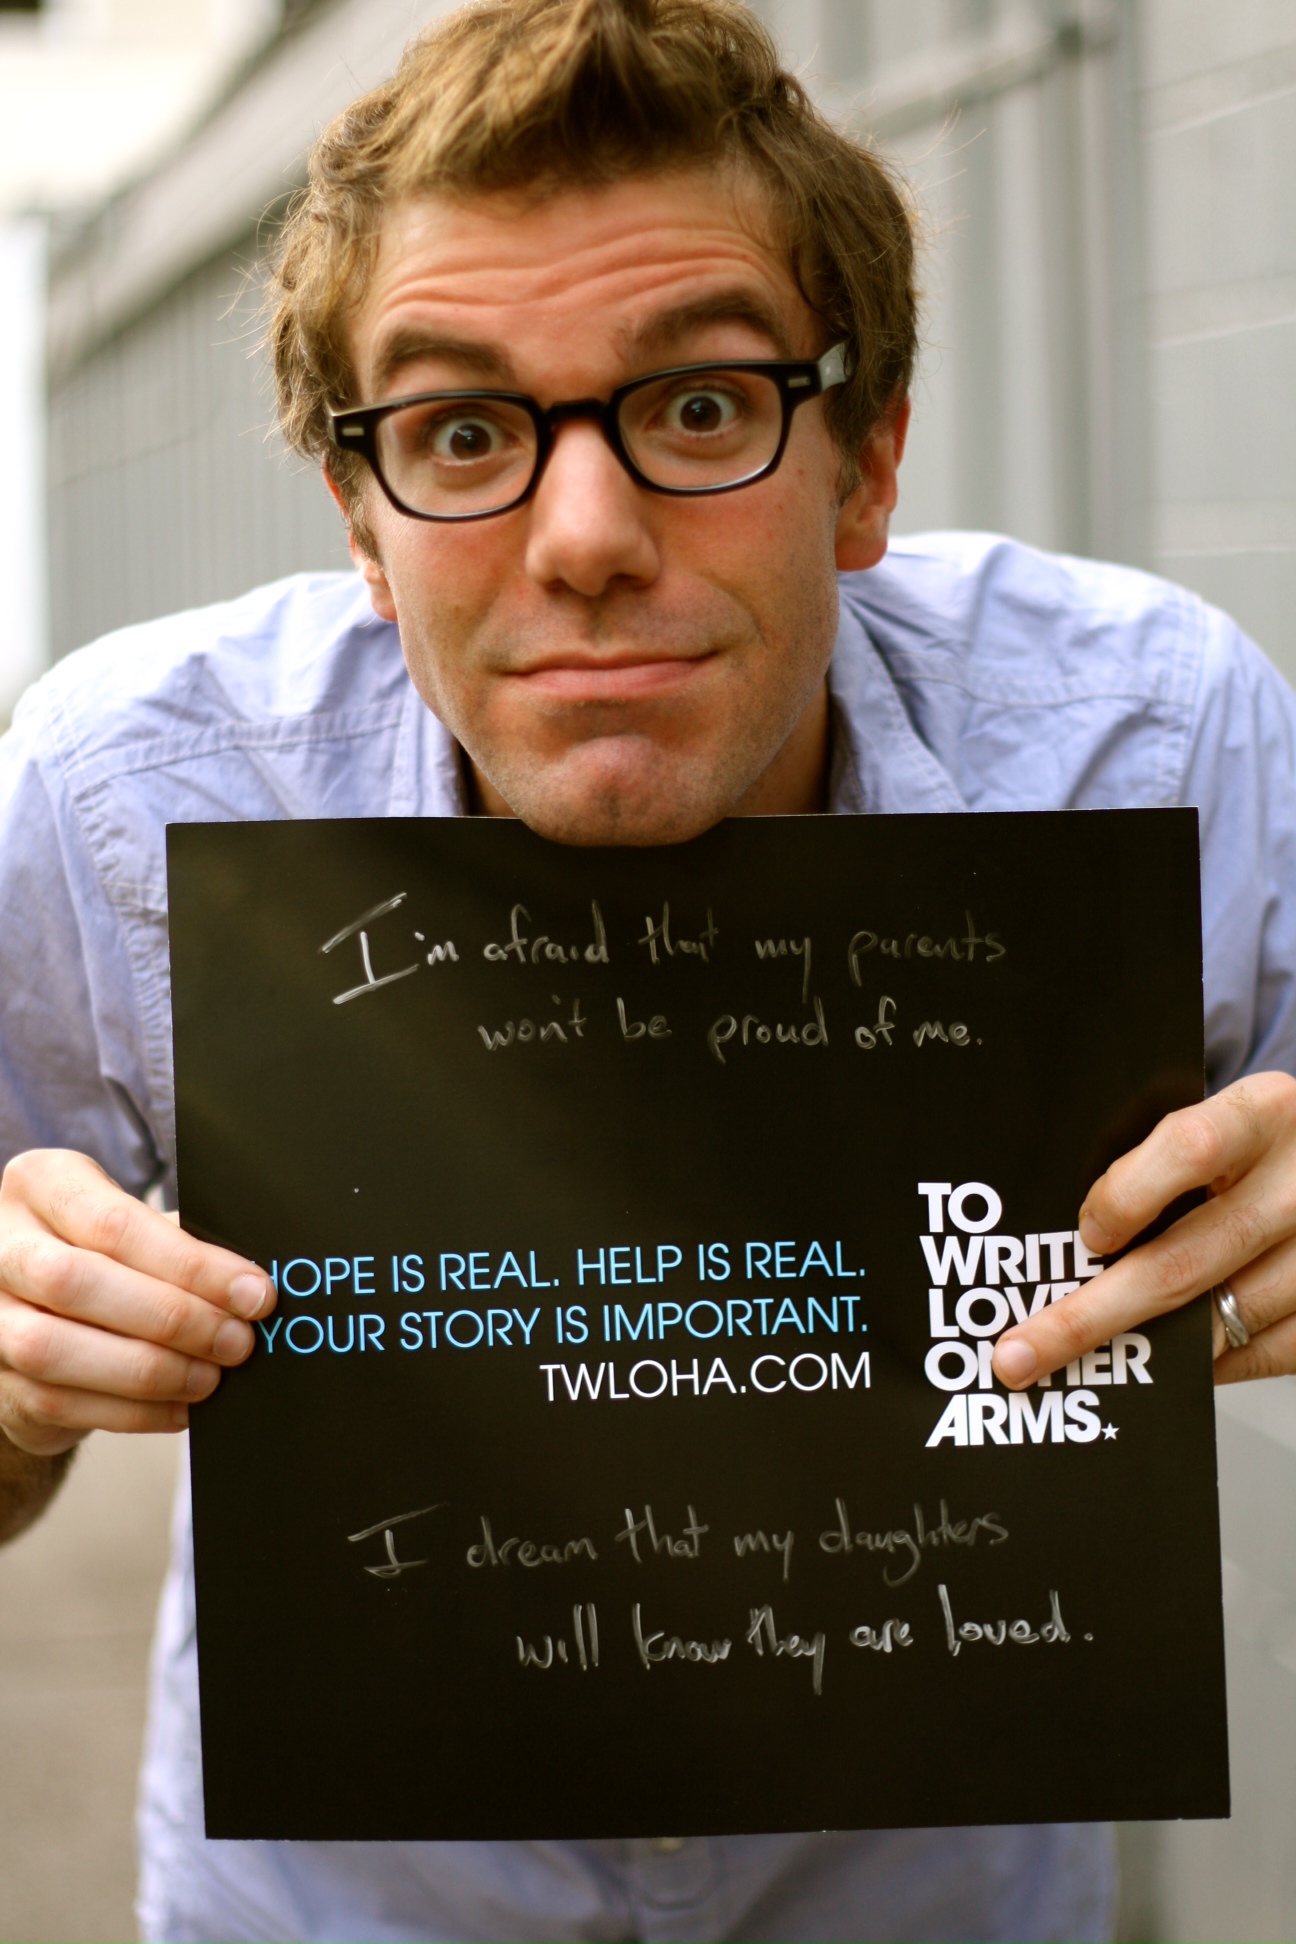 I'm afraid that my parents
won't be proud of me.
HOPE IS REAL. HELP IS REAL.
YOUR STORY IS IMPORTANT.
TWLOHA.COM
TO
WRITE
LOVE
ON HER
ARMS.
I dream that my daughters
will know they are loved.